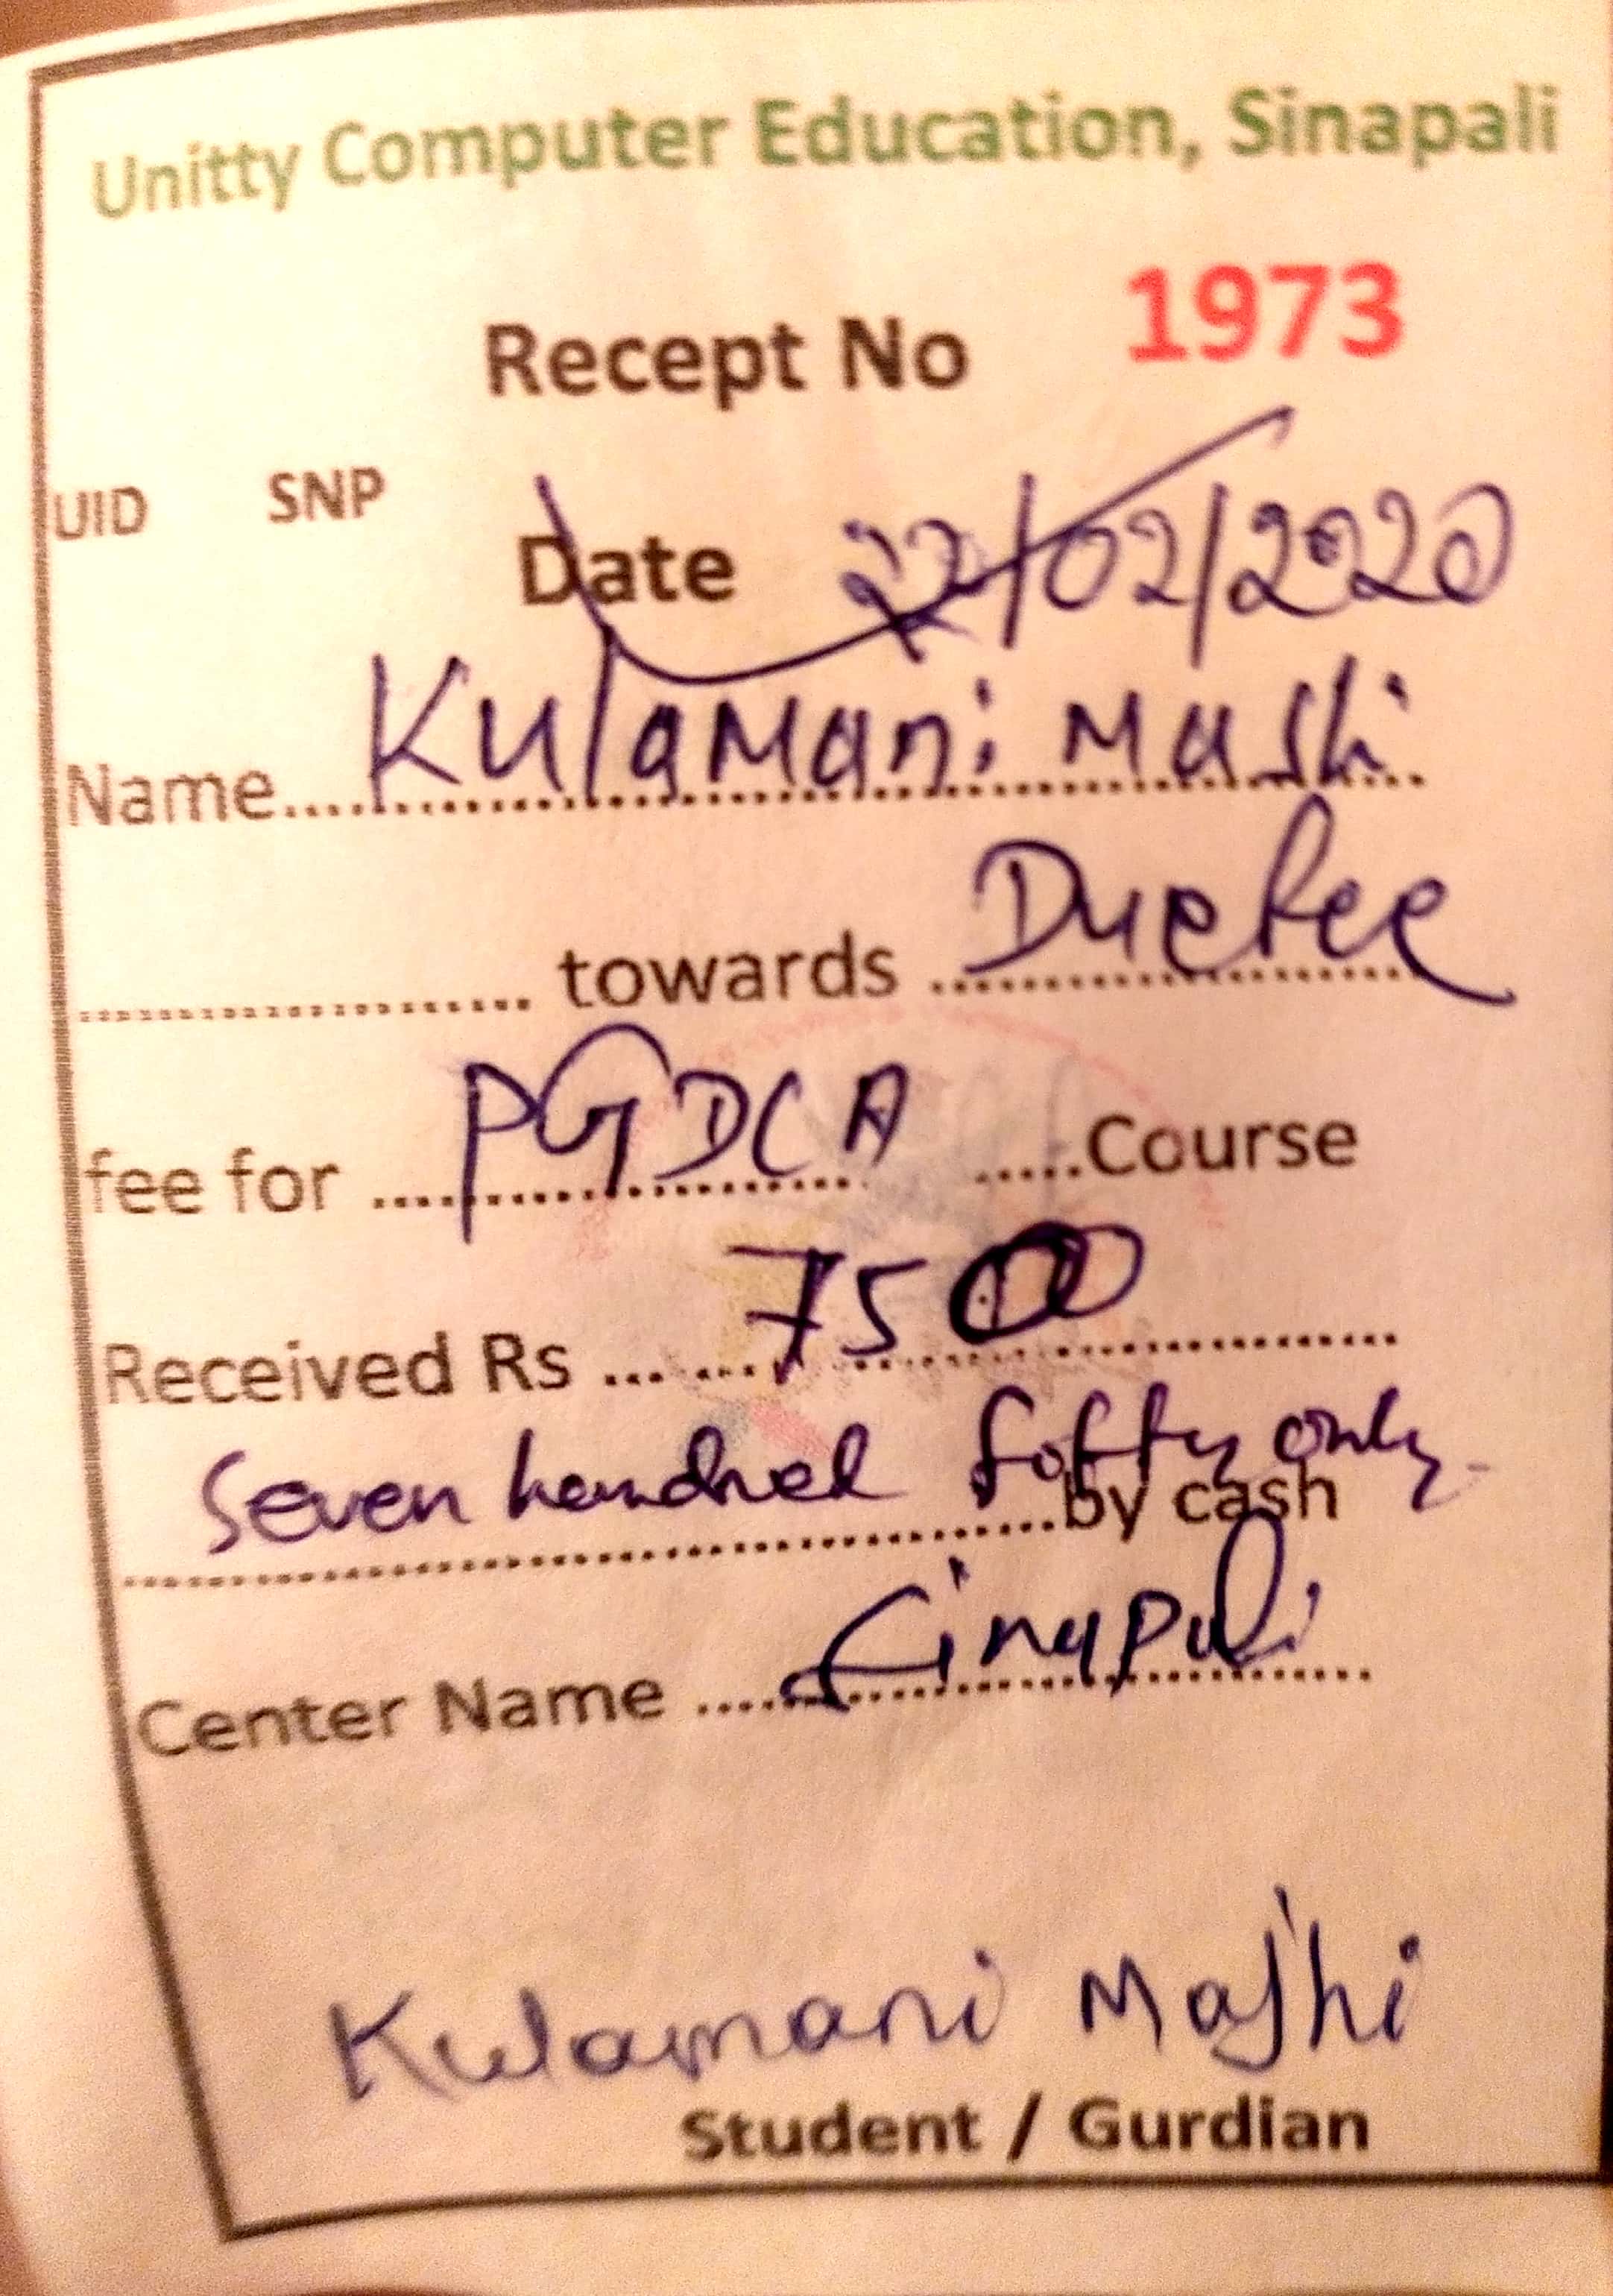 Unitty Computer Education, Sinapali
Recept No 1973
UID SNP
Date 22/02/2020
Name....Kulamani Mashi
towards Duefee
fee for PGDCA Course
Received Rs 7500
Seven hundred fofty only
by cash
Center Name Sinapali
Kulamani Majhi
Student / Gurdian